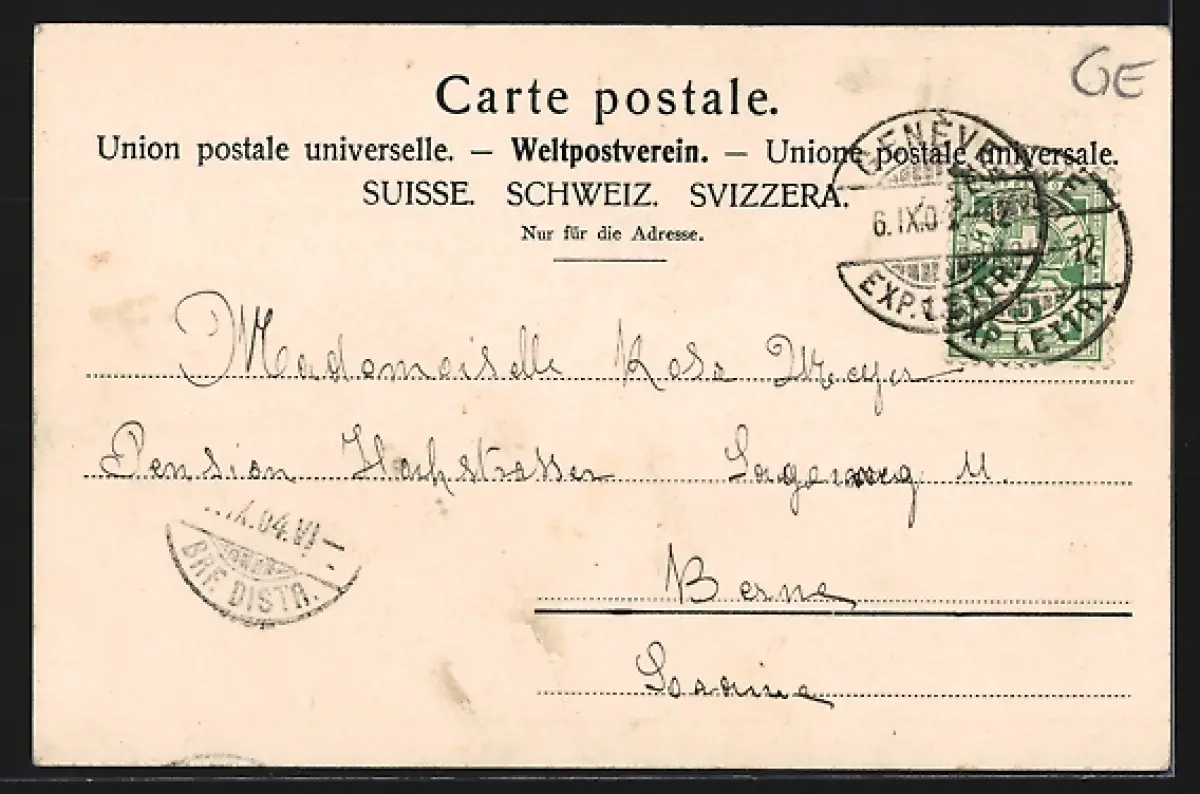 GE
Carte postale.
Union postale universelle. — Weltpostverein. — Unione postale universale.
SUISSE. SCHWEIZ. SVIZZERA.
Nur für die Adresse.
GENÈVE
6.IX.04-12
EXP. LETTR.
-12
EXP. LETTR.
Mademoiselle Rosa Meyer
Pension Hochstrasser 11.
.04.VI-
BRF. DISTR.
Berne
Lorraine